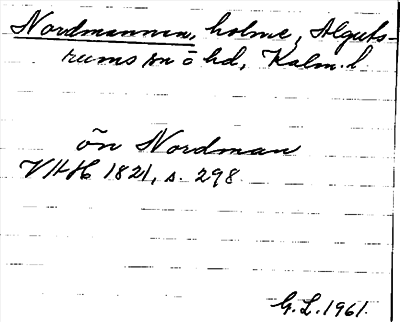 Nordmannen, holme, Alguts-
rums sn o hd, Kalm. l.
ön Nordman
VHH 1821, s. 298
G. L. 1961.